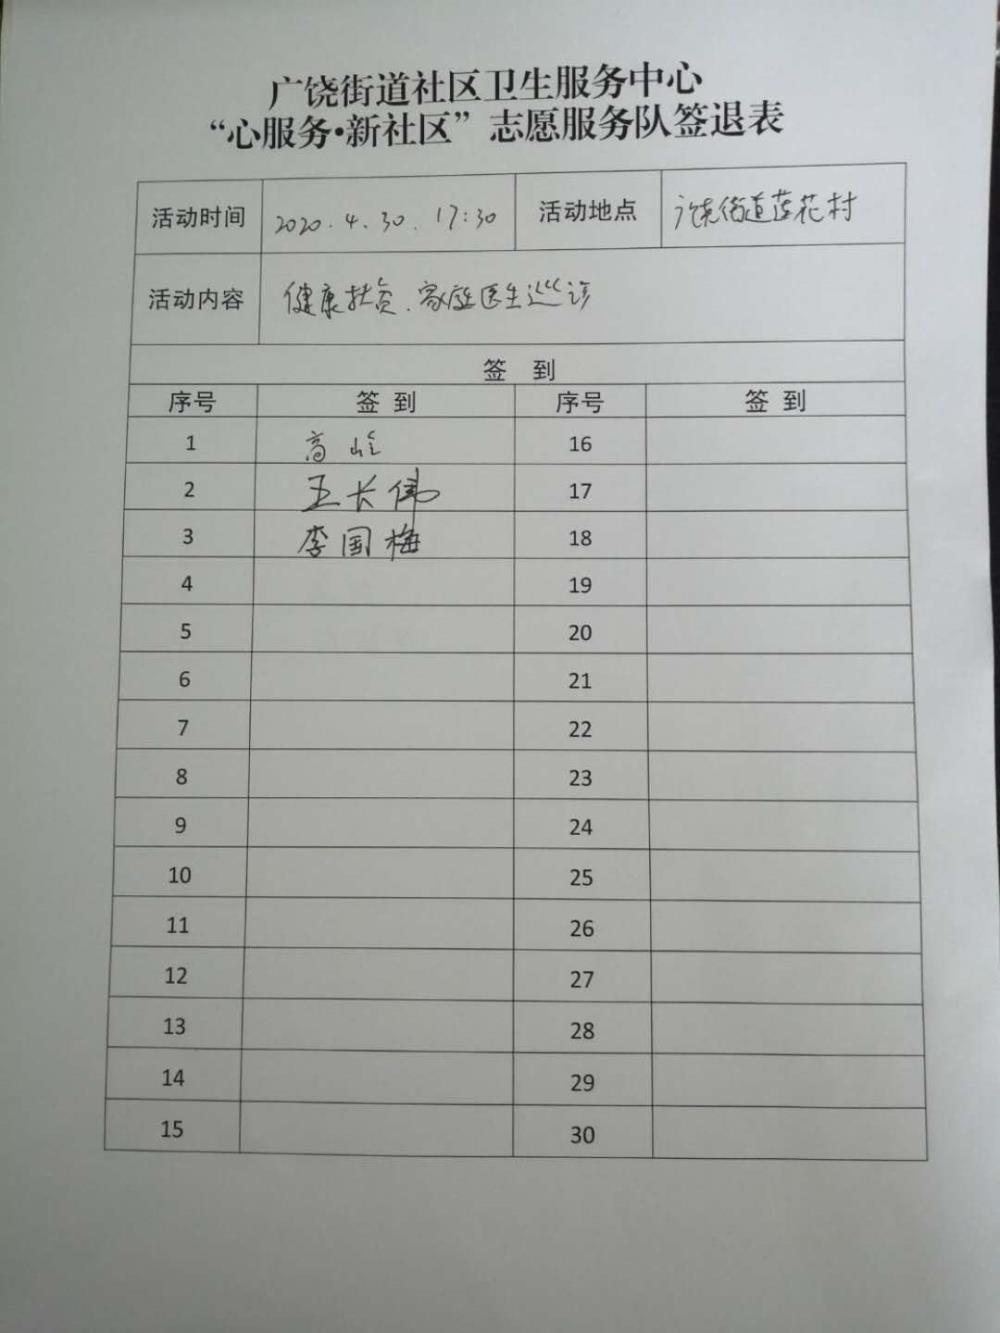 广饶街道社区卫生服务中心
“心服务·新社区”志愿服务队签退表
活动时间 2020.4.30.17:30 活动地点 广饶街道莲花村
活动内容 健康扶贫.家庭医生巡诊
签 到
序号 签 到 序号 签 到
1 高岭 16
2 王长伟 17
3 李国梅 18
4 19
5 20
6 21
7 22
8 23
9 24
10 25
11 26
12 27
13 28
14 29
15 30